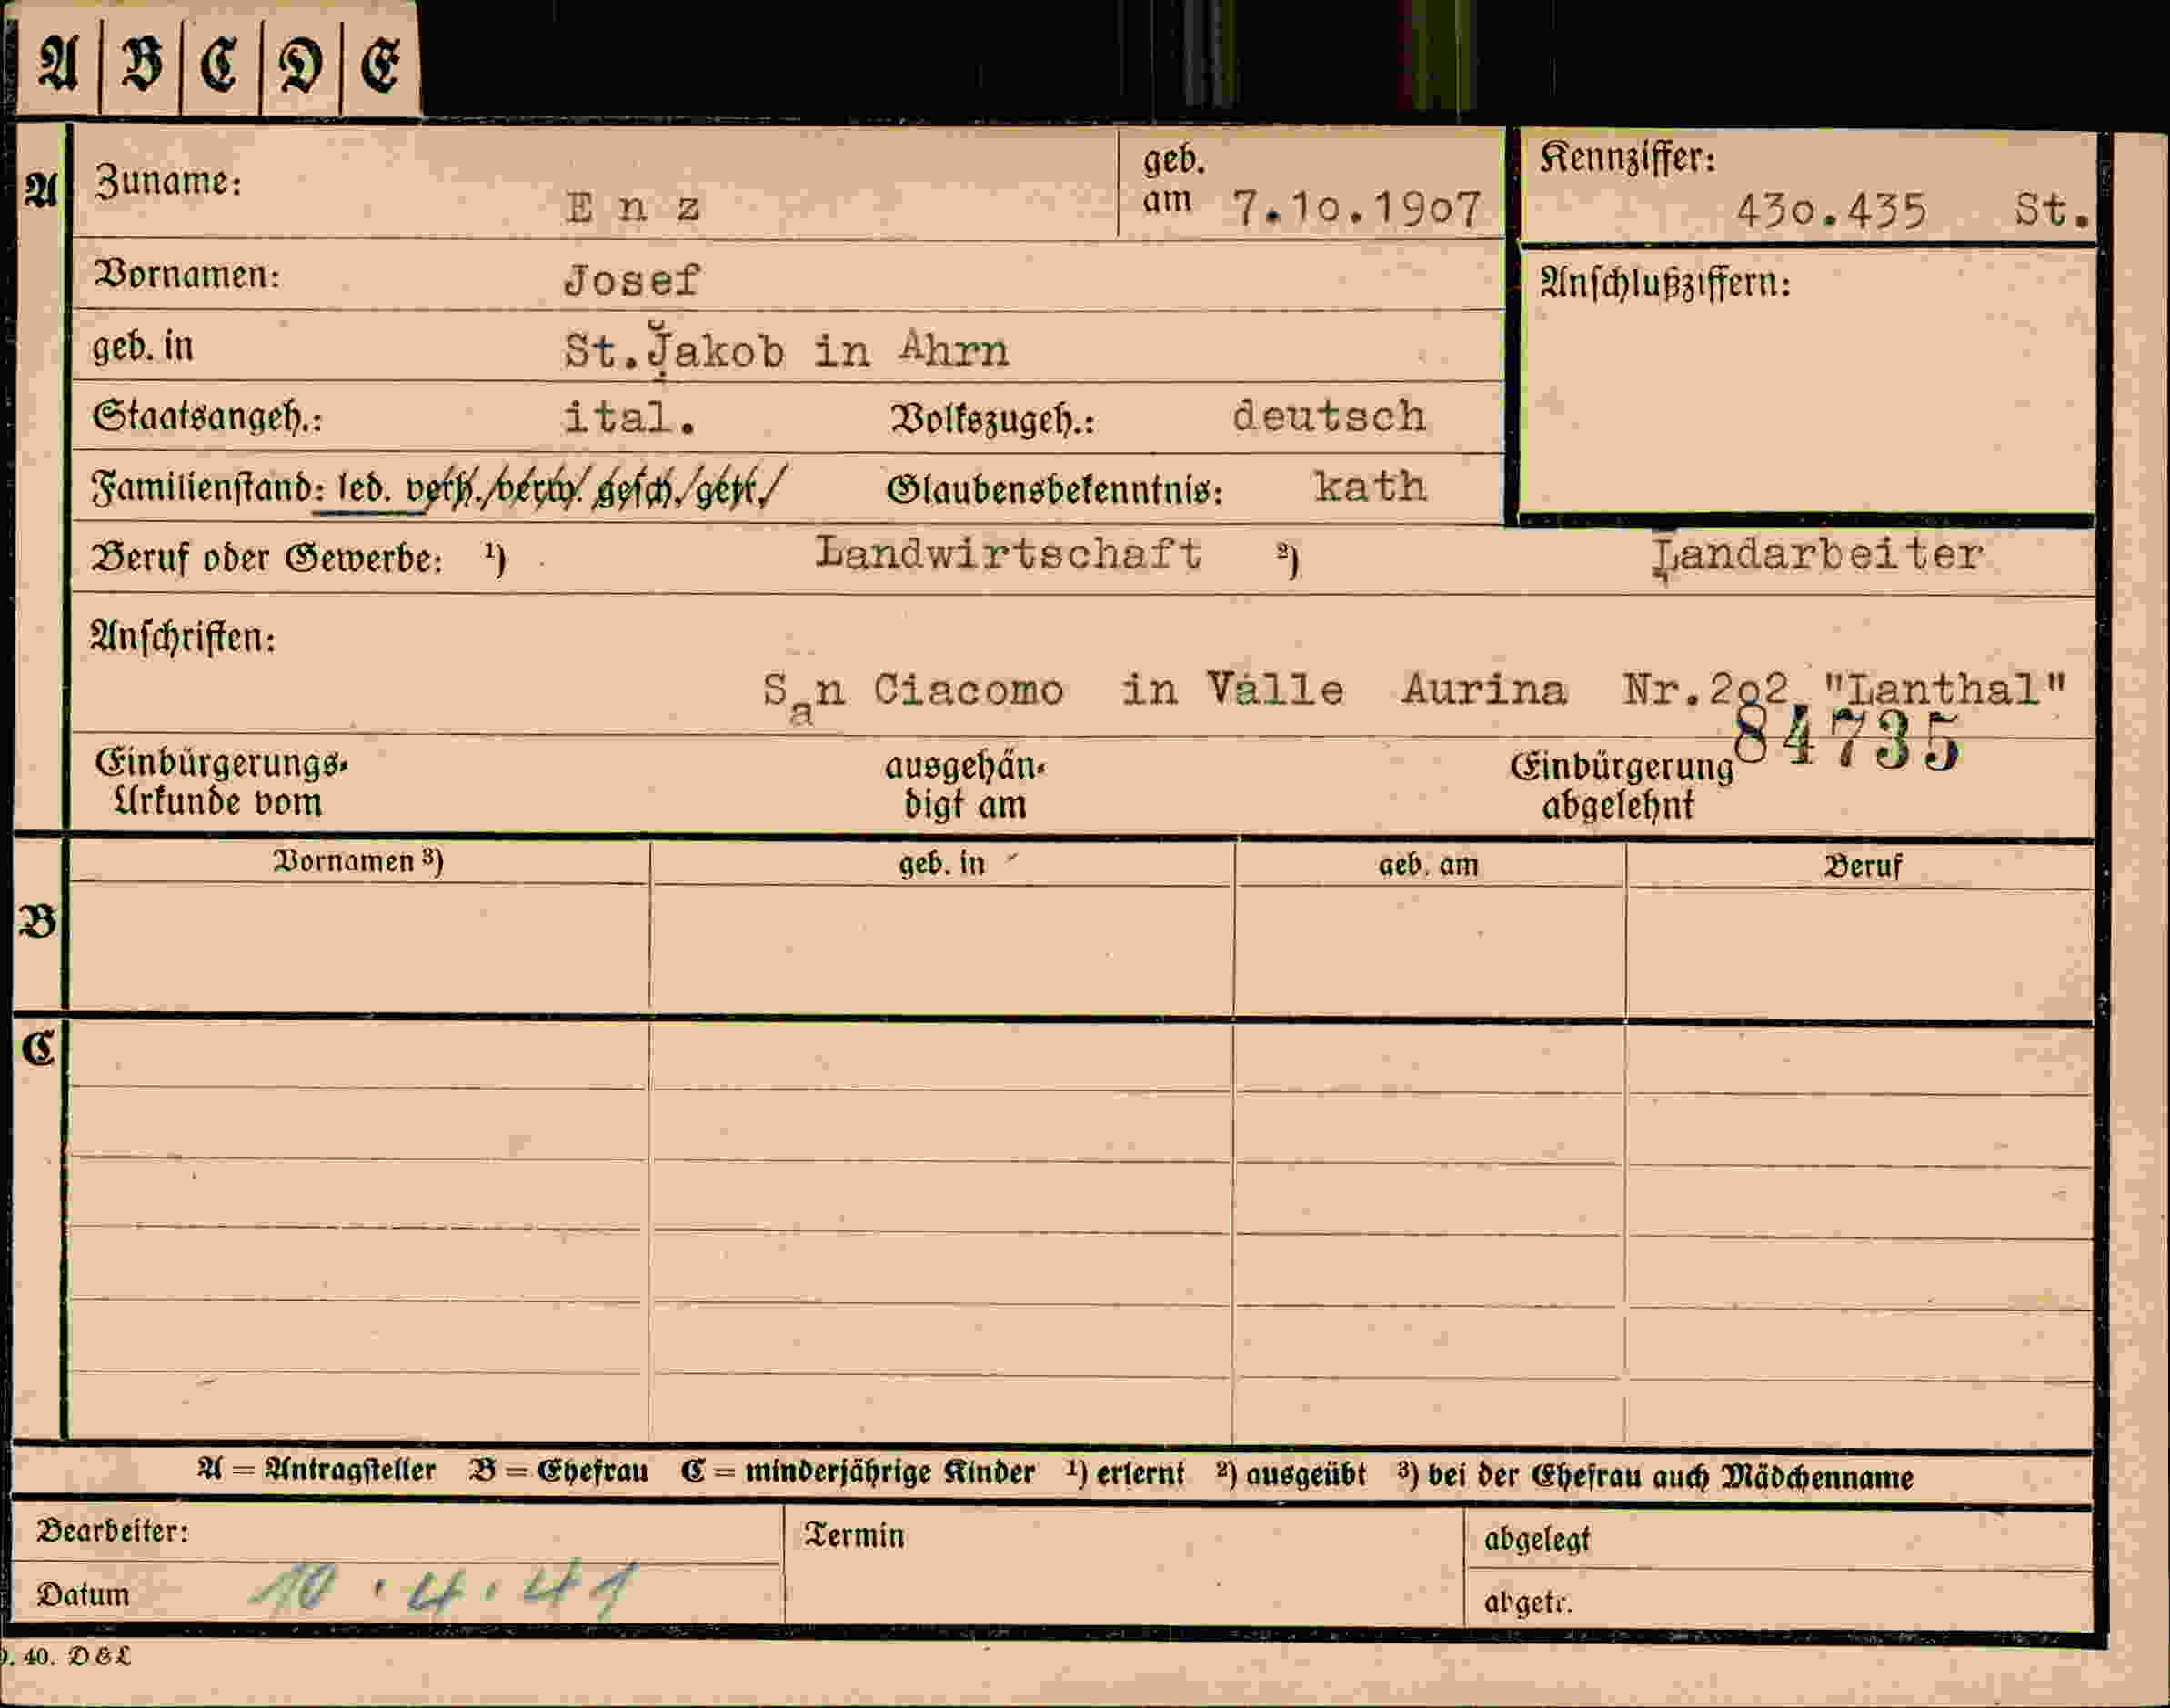 A B C D E
A Zuname: Enz geb. am 7.10.1907 Kennziffer: 430.435 St.
Vornamen: Josef Anschlußziffern:
geb. in St.Jakob in Ahrn
Staatsangeh.: ital. Volkszugeh.: deutsch
Familienstand: led. verh./verw./gesch./getr./ Glaubensbekenntnis: kath
Beruf oder Gewerbe: ¹) Landwirtschaft ²) Landarbeiter
Anschriften:
San Ciacomo in Valle Aurina Nr.202 "Lanthal"
84735
Einbürgerungs- ausgehän- Einbürgerung
Urkunde vom digt am abgelehnt
Vornamen ³) geb. in geb. am Beruf
B
C
A = Antragsteller B = Ehefrau C = minderjährige Kinder ¹) erlernt ²) ausgeübt ³) bei der Ehefrau auch Mädchenname
Bearbeiter: Termin abgelegt
Datum 10.4.41 abgetr.
40. D&L